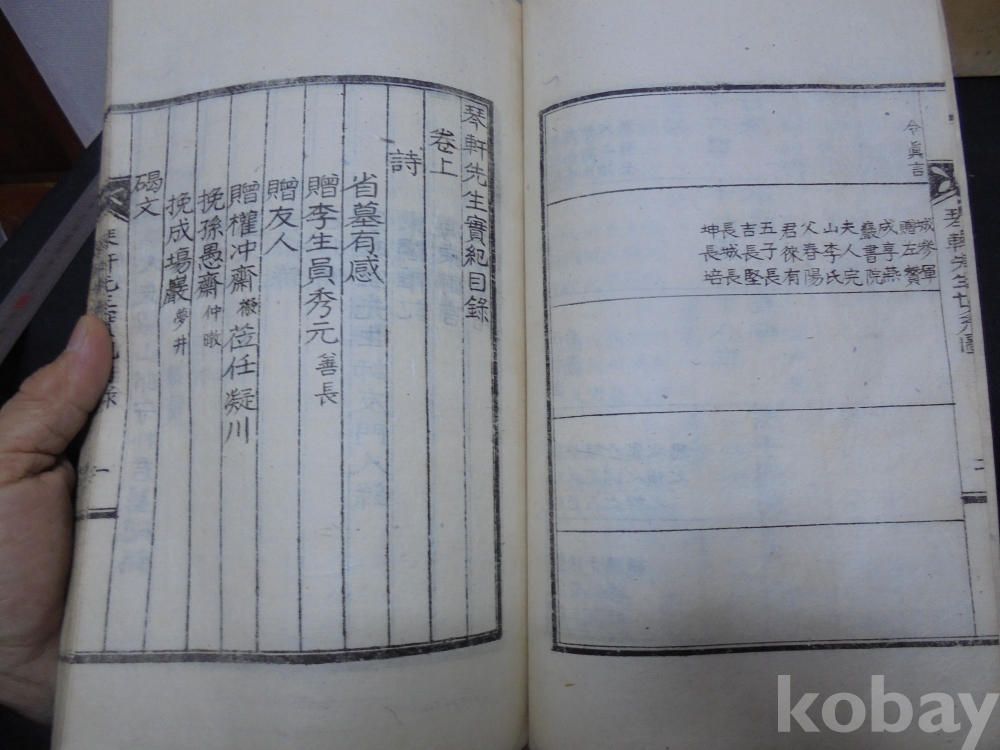 琴軒先生世系圖
二
令眞言
城參軍
贈左贊
成享燕
巖書院
夫人完
山李氏
父春陽
君徠有
五子長
吉長堅
長城長
坤長培
琴軒先生實紀目錄
卷上
詩
省墓有感
贈李生員秀元 善長
贈友人
贈權冲齋 橃 莅任凝川
挽孫愚齋 仲暾
挽成塲巖 夢井
碣文
琴軒先生實紀目錄
一
kobay